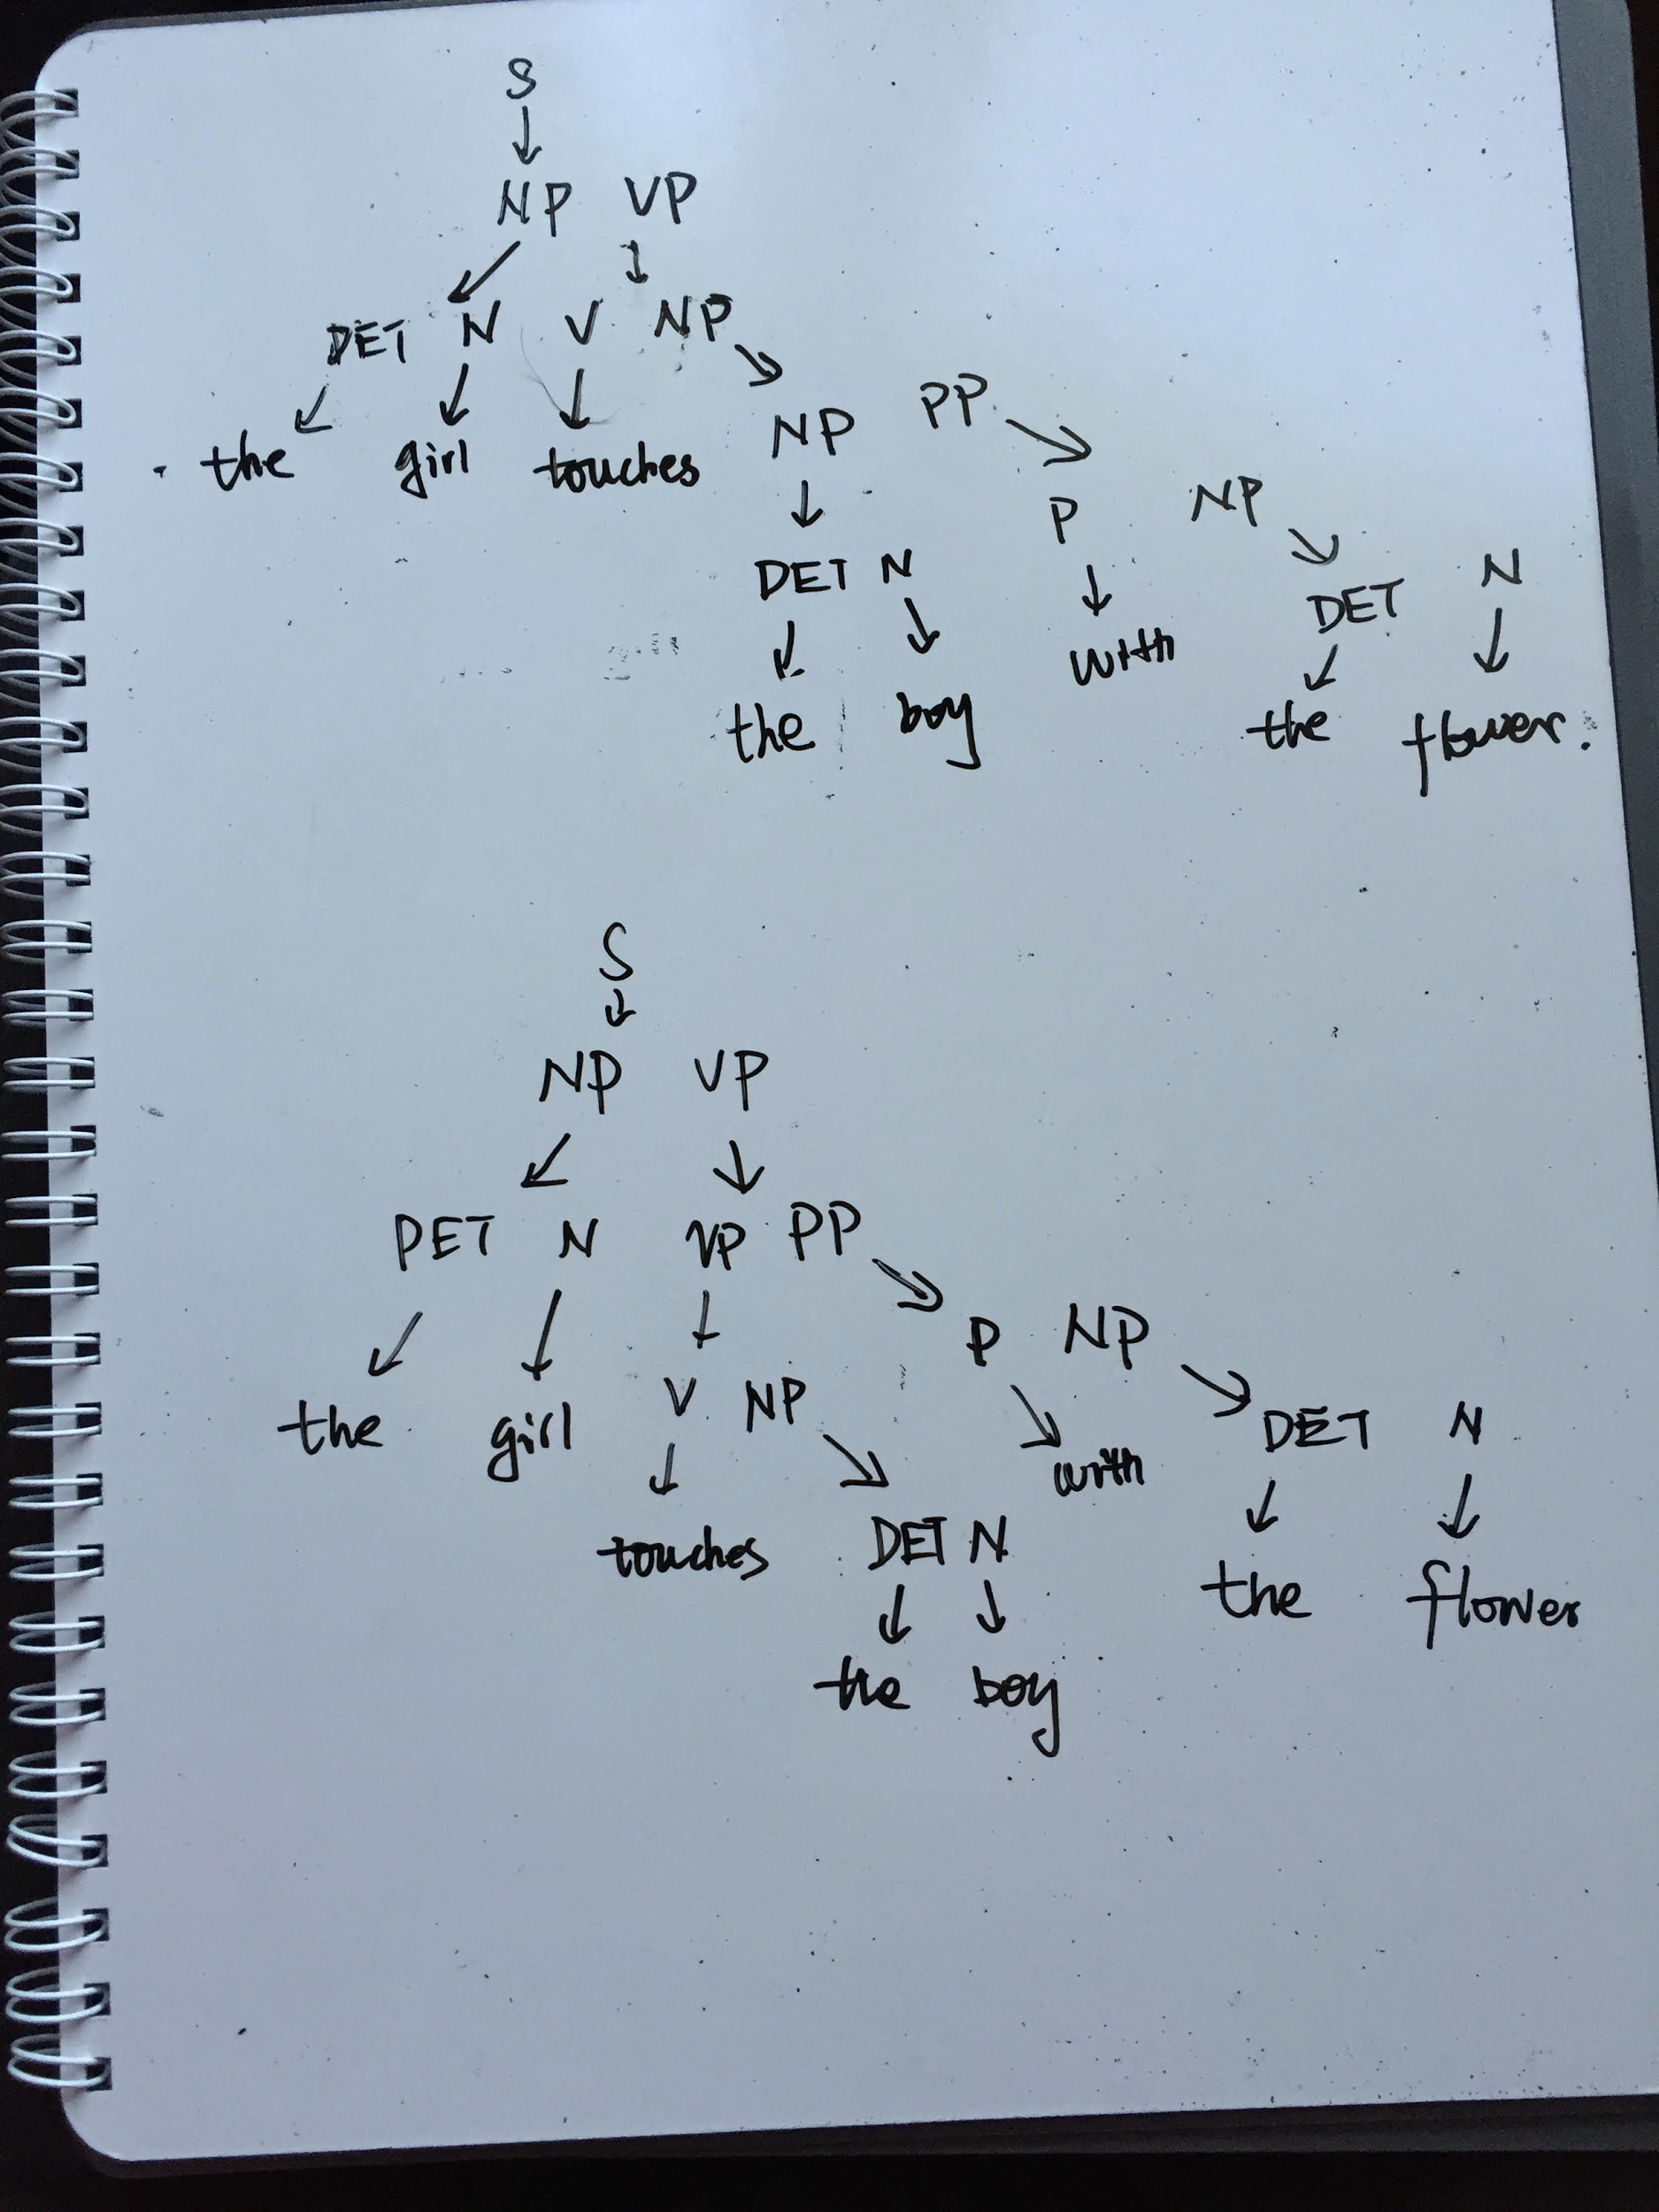 S
NP VP
DET N V NP
the girl touches NP PP
DET N P NP
the boy with DET N
the flower.
S
NP VP
DET N VP PP
the girl V NP P NP
touches DET N with DET N
the boy the flower